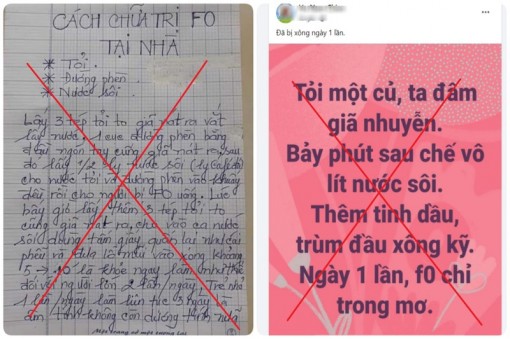 CÁCH CHỮA TRỊ F0
TẠI NHÀ
* Tỏi.
* Đường phèn
* Nước sôi.
Lấy 3 tép tỏi to giã nát ra vắt
lấy nước. 1 cục đường phèn bằng
ngón tay cũng giã nát rồi sau
đó lấy 1/2 ly nước sôi
cho nước tỏi và đường phèn vào khuấy
đều rồi cho người bị F0 uống. Lúc
bấy giờ lấy thêm 3 tép tỏi to
cũng giã nát ra, cho vào ca nước
sôi dùng tấm giấy, quấn lại như cái
phễu và đưa lỗ mũi vào xông khoảng
5 → 10' là khỏe ngay làm như thế
đối với người lớn 2 lần / ngày. Trẻ nhỏ
1 lần / ngày làm liên tục 3 ngày là
âm tính không còn dương tính nữa
Đã bị xông ngày 1 lần.
Tỏi một củ, ta đâm
giã nhuyễn.
Bảy phút sau chế vô
lít nước sôi.
Thêm tinh dầu,
trùm đầu xông kỹ.
Ngày 1 lần, f0 chỉ
trong mơ.